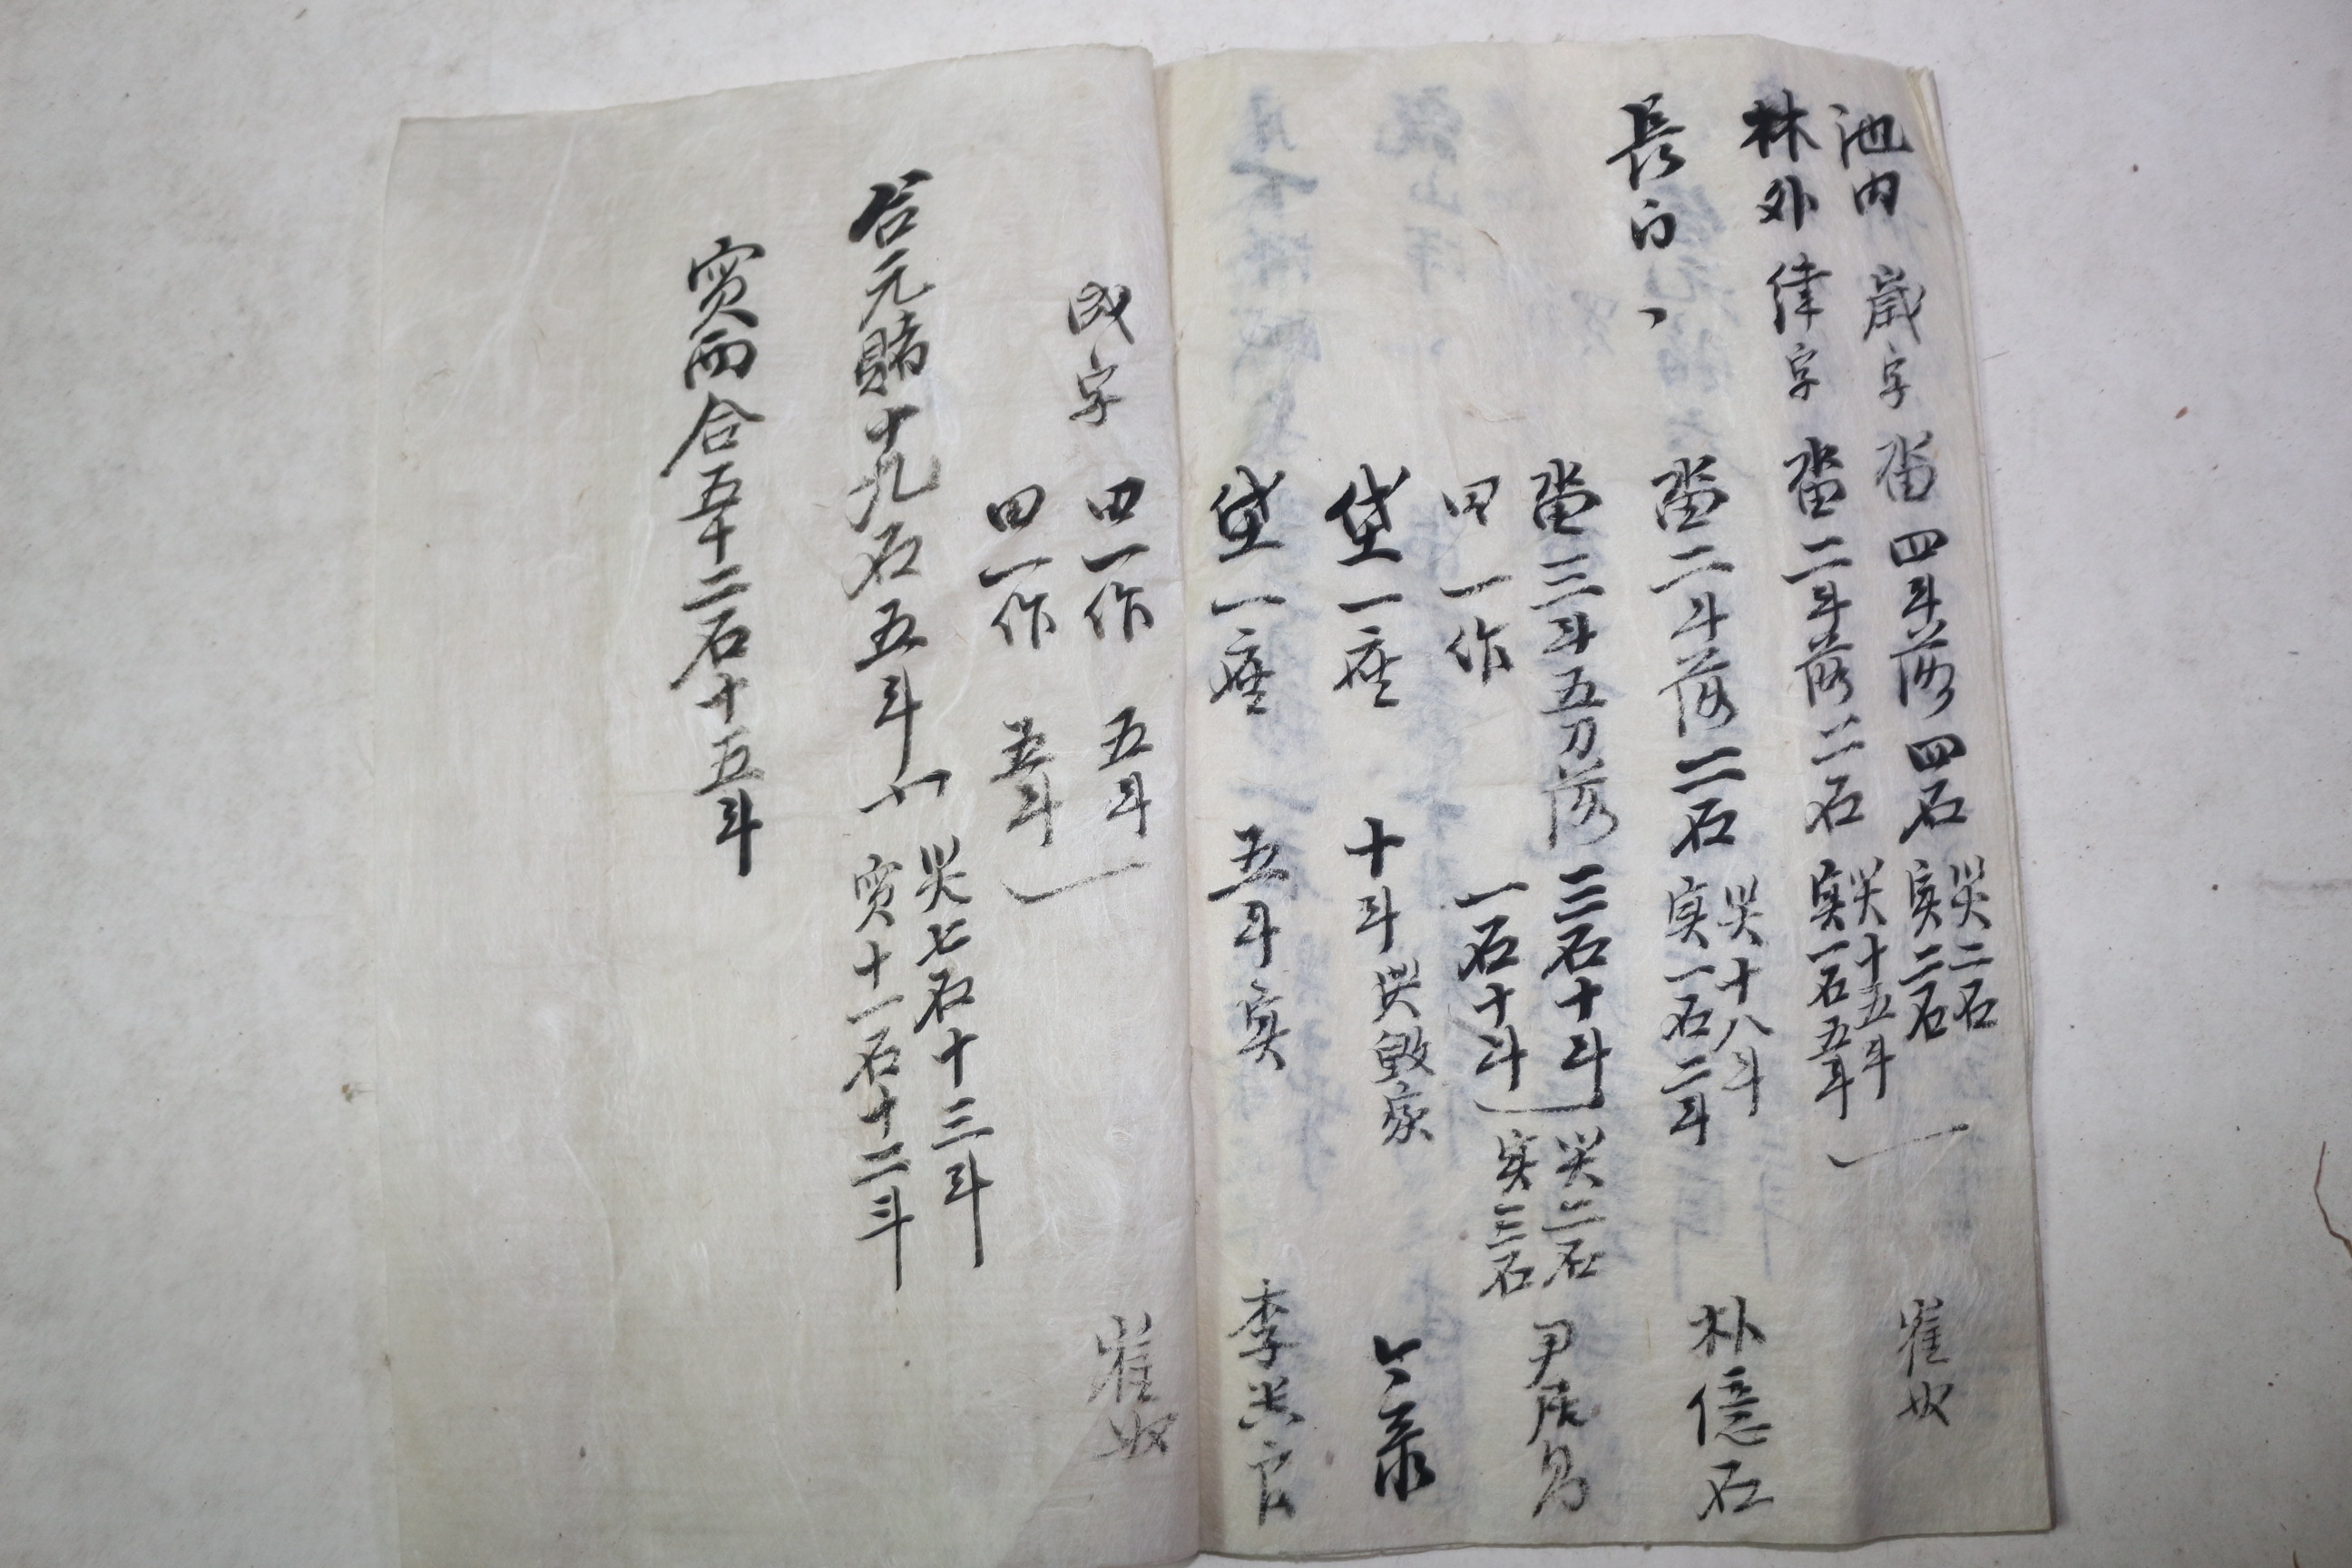 池内 歲字 畓四斗落 四石 災二石 実二石 崔奴
林外 律字 畓二斗落 二石 災十五斗 実一石五斗
長 畓二斗落 二石 災十八斗 実一石二斗 朴億石
畓三斗五刀落 三石十斗 災二石 実三石 尹
田一作 一石十斗
垈一座 十斗 災毀家
垈一座 五斗 実 李
成字 田一作 五斗 崔奴
田一作 五斗
合元賭十九石五斗 內 災七石十三斗 實十一石十二斗
實兩合五十二石十五斗